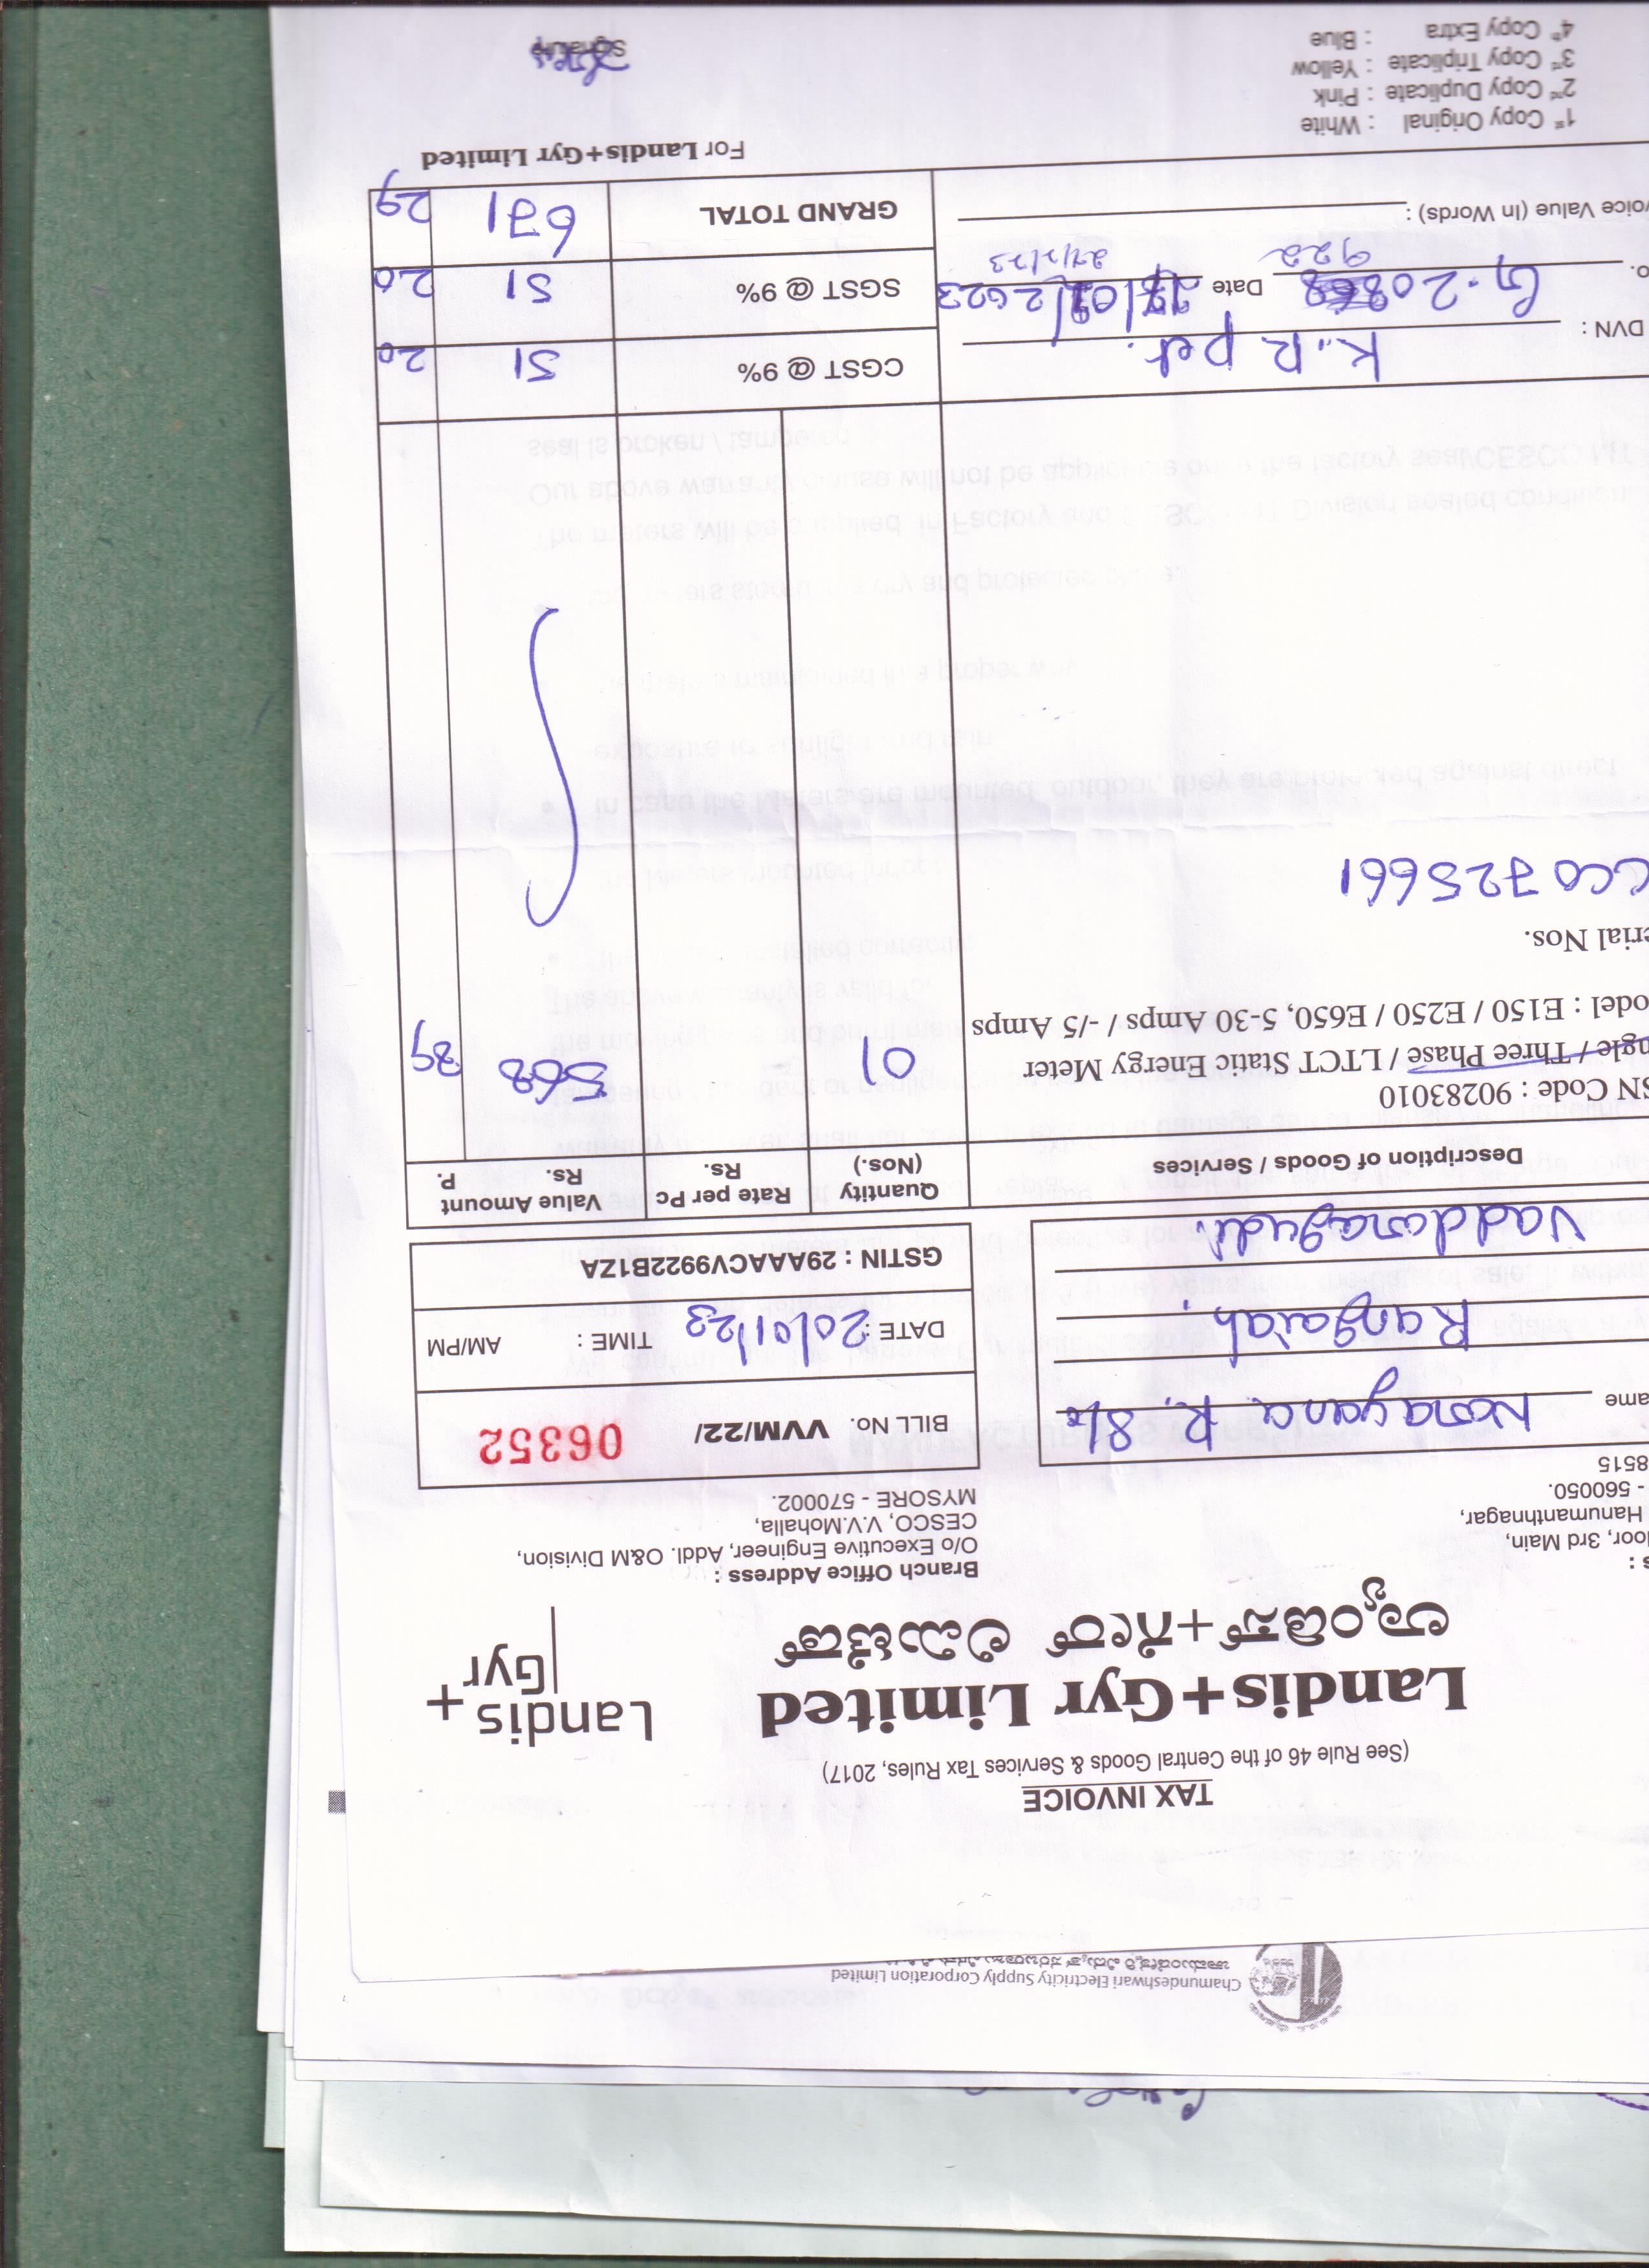 Chamundeshwari Electricity Supply Corporation Limited
TAX INVOICE
(See Rule 46 of the Central Goods & Services Tax Rules, 2017)
Landis+Gyr Limited
ಲ್ಯಾಂಡಿಸ್+ಗೇರ್ ಲಿಮಿಟೆಡ್
Landis+
Gyr
s :
loor, 3rd Main,
Hanumanthnagar,
- 560050.
8515
Branch Office Address :
O/o Executive Engineer, Addl. O&M Division,
CESCO, V.V.Mohalla,
MYSORE - 570002.
ame Narayana R. S/o
Rangaiah,
Vaddaragudi.
BILL NO. VVM/22/ 06352
DATE : 20/01/23 TIME : AM/PM
GSTIN : 29AAACV9922B1ZA
Description of Goods / Services Quantity (Nos.) Rate per Pc Rs. Value Amount Rs. P.
SN Code : 90283010
ngle / Three Phase / LTCT Static Energy Meter 01 568 89
odel : E150 / E250 / E650, 5-30 Amps / -/5 Amps
erial Nos.
CC0725661
DVN : K.R. pet.
CGST @ 9% 51 20
o. Date
922 27/1/23
SGST @ 9% 51 20
voice Value (In Words) :
GRAND TOTAL 671 29
For Landis+Gyr Limited
1st Copy Original : White
2nd Copy Duplicate : Pink
3rd Copy Triplicate : Yellow
4th Copy Extra : Blue
Signature